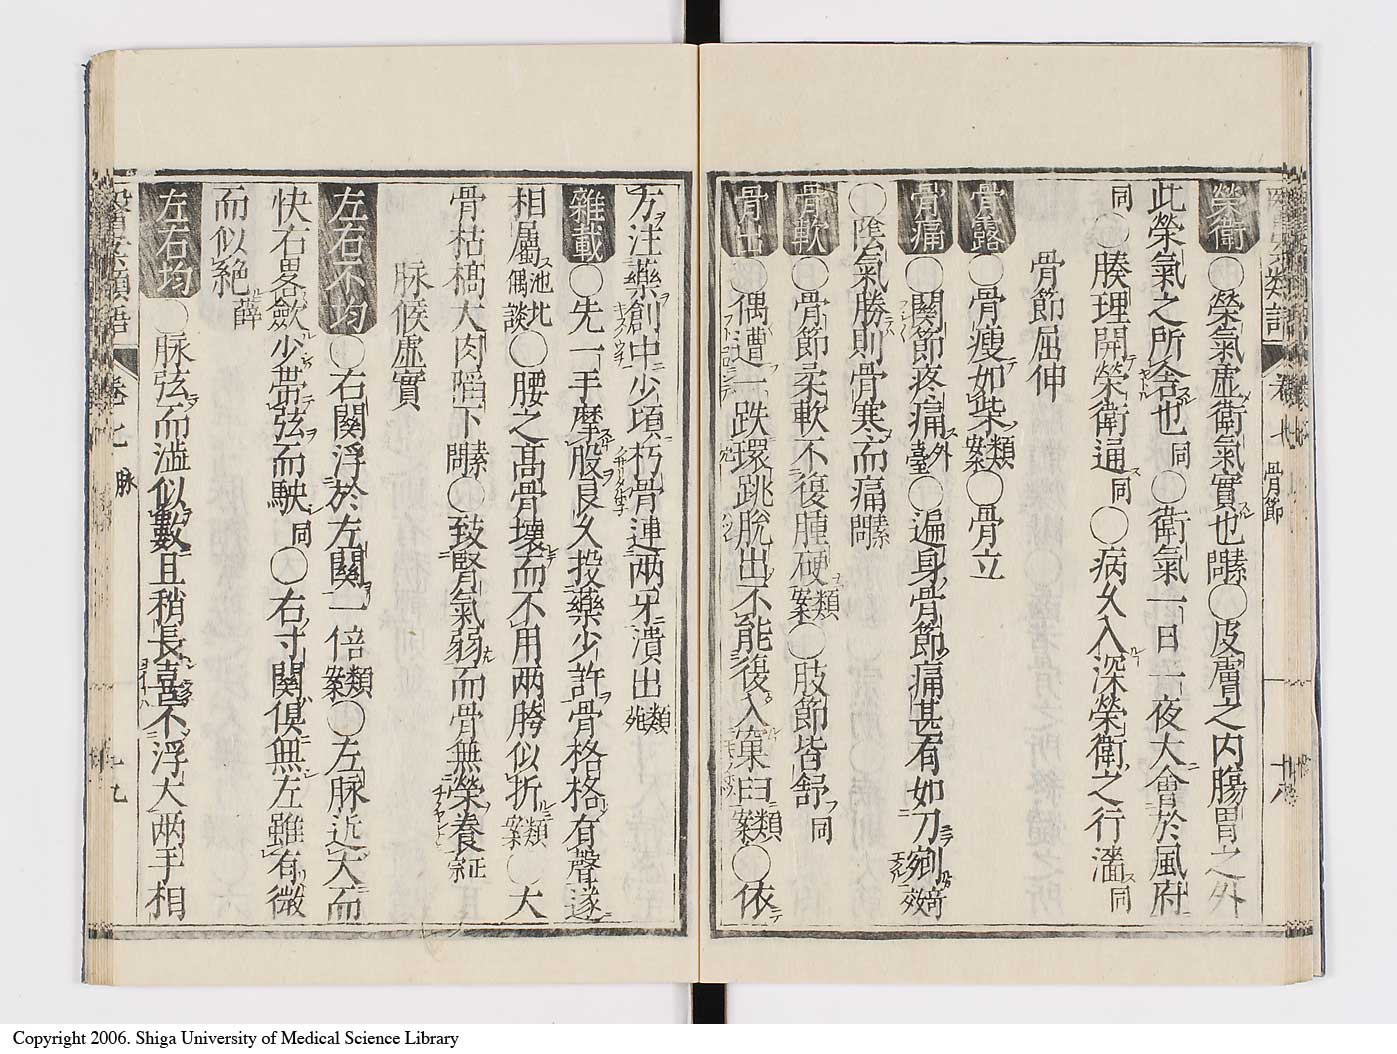 榮衛○榮氣虛衛氣實也素問○皮膚之內腸胃之外
此榮氣之所舍也同○衛氣一日一夜大會於風府
同○腠理開榮衛通同○病久入深榮衛之行濇同
骨節屈伸
骨露○骨瘦如柴類案○骨立
骨痛○關節疼痛外臺○遍身骨節痛甚有如刀剜奇效
○陰氣勝則骨寒而痛素問
骨軟○骨節柔軟不復腫硬類案○肢節皆舒同
骨出○偶遭一跌環跳脫出不能復入窠臼類案○依
骨節
十八
方注藥創中少頃朽骨連兩牙潰出類苑
雜載○先一手摩股良久投藥少許骨格格有聲遂
相屬池北偶談○腰之高骨壞而不用兩胯似折類案○大
骨枯槁大肉陷下素問○致腎氣弱而骨無榮養証
脉候虛實
左右不均○右關浮於左關一倍類案○左脉近大而
快右畧歛少帶弦而駃同○右寸關俱無左雖有微
而似絕薛
左右均○脉弦而溢似數且稍長喜不浮大兩手相
卷七 脉
十九
Copyright 2006. Shiga University of Medical Science Library